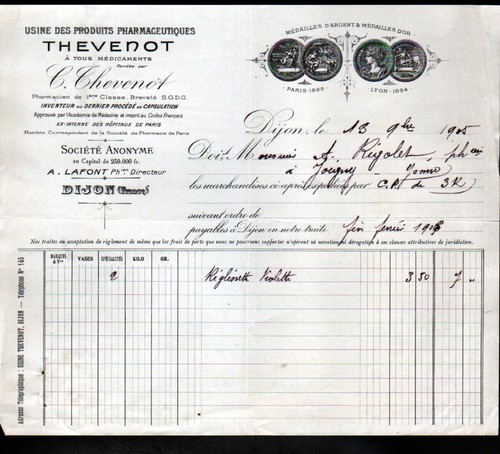 USINE DES PRODUITS PHARMACEUTIQUES
THEVENOT
À TOUS MÉDICAMENTS
Fondée par
C. Thevenot
Pharmacien de 1ère Classe, Breveté S.G.D.G.
INVENTEUR DU DERNIER PROCÉDÉ DE CAPSULATION
Approuvé par l'Académie de Médecine et inscrit au Codex Français
EX-INTERNE DES HÔPITAUX DE PARIS
Membre Correspondant de la Société de Pharmacie de Paris
SOCIÉTÉ ANONYME
au Capital de 250.000 fr.
A. LAFONT Phien Directeur
DIJON (France)
MÉDAILLES D'ARGENT & MÉDAILLES D'OR
PARIS-1889
LYON-1894
Dijon, le 13 9bre 1905
Doit Monsieur A. Rigolet, phen
à Joigny Yonne
les marchandises ci-après expédiées par C.P. de 3 K
suivant ordre de
payables à Dijon en notre traite fin février 1906
Nos traites ou acceptation de règlement de même que les frais de ports que nous pouvons supporter n'opèrent ni novation ni dérogation à ces clauses attributives de juridiction.
MARQUES & Nos VASES SPÉCIALITÉS KILO GR.
2 Réglinette Violette 3 50 7 "
Adresse Télégraphique : USINE THEVENOT, DIJON — Téléphone N° 145